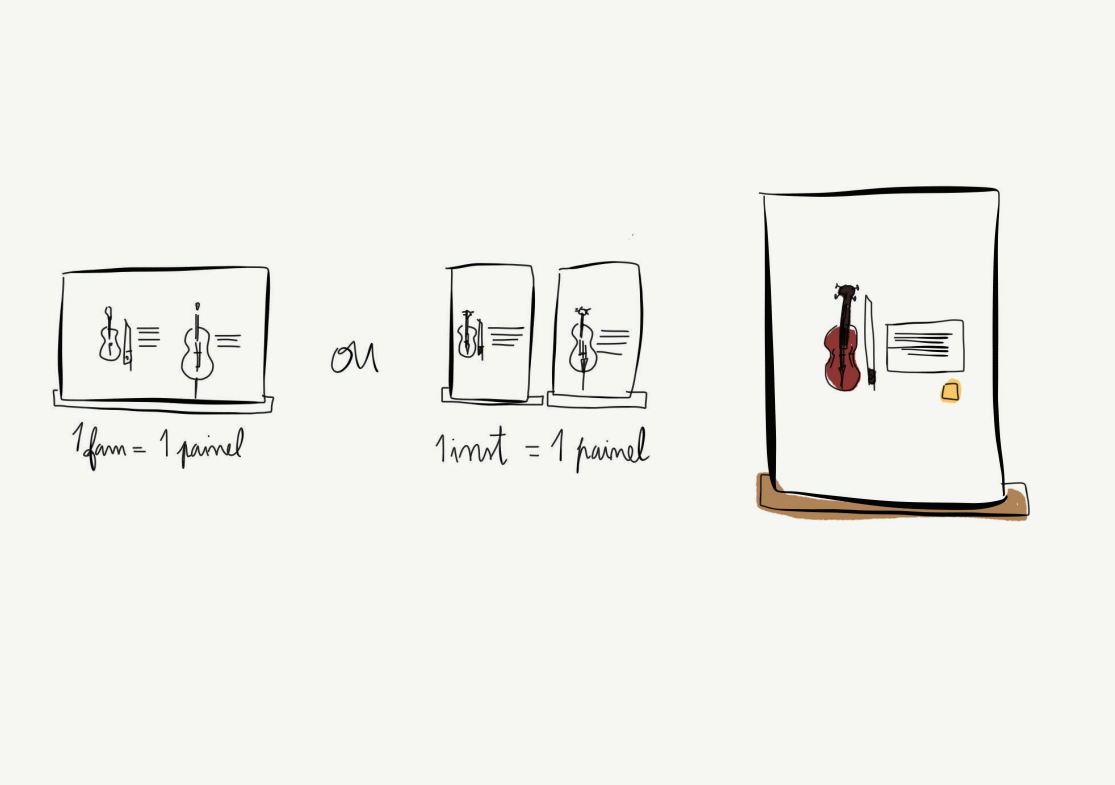 1 fam = 1 painel
ou
1 inst = 1 painel